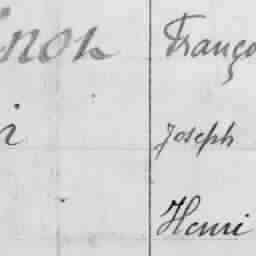 non Franço
i Joseph
Henri